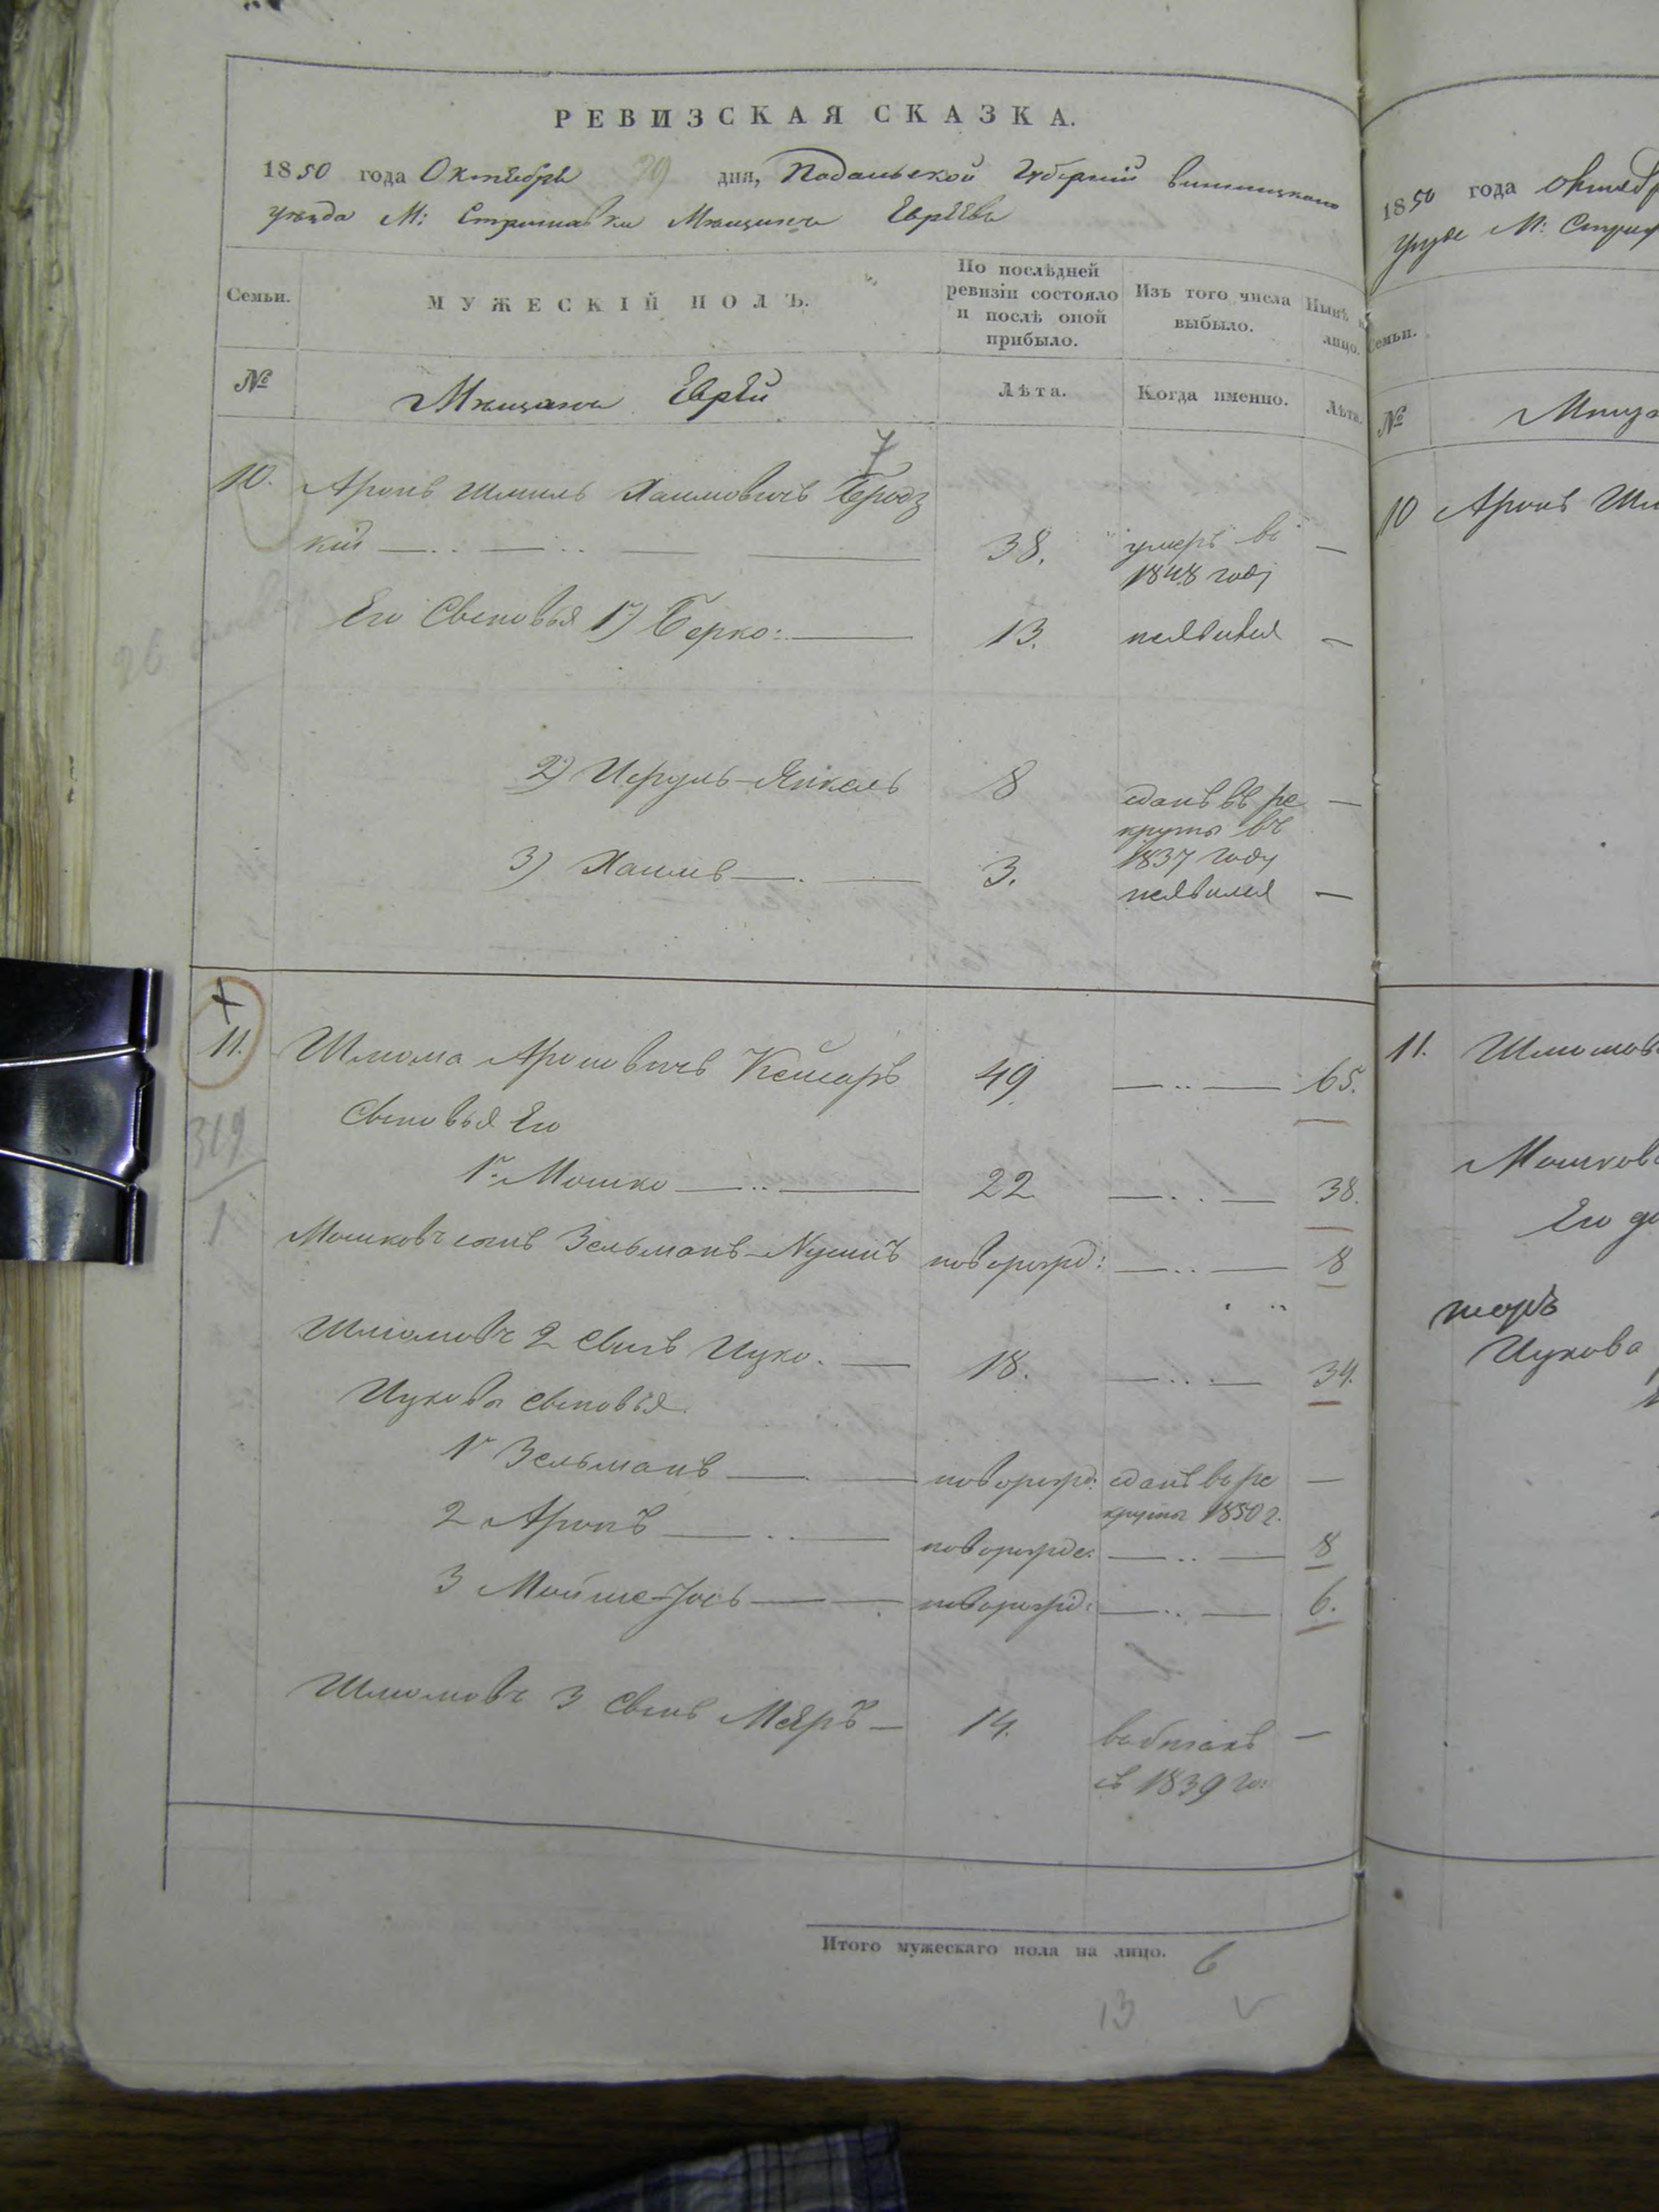 РЕВИЗСКАЯ СКАЗКА.
1850 года Октября 29 дня, Подольской Губерніи Винницкаго
уѣзда М: Стрижавки Мѣщанъ Евреевъ
Семьи. МУЖЕСКІЙ ПОЛЪ. По послѣдней ревизіи состояло и послѣ оной прибыло. Изъ того числа выбыло. Нынѣ на лицо.
№ Мѣщане Евреи Лѣта. Когда именно. Лѣта.
7
10. Аронъ Шмиль Хаимовичъ Бродз
кій 38. умеръ въ
1848 году
Его Сыновья 1й) Берко: 13. неявился
2) Исруль-Янкель 8 сданъ въ ре
круты въ
1837 году
3) Хаимъ 3. неявился
11. Шлиома Ароновичъ Кешаръ 49 65.
Сыновья Его
319
1й Мошко 22 38.
1
Мошковъ сынъ Зельманъ-Нусинъ новорожд: 8
Шлиомовъ 2 Сынъ Ицко. 18. 34.
Ицковы Сыновья
1й Зельманъ новорожд: сданъ въ ре
круты 1850 г.
2 Аронъ новорожде: 8
3 Мойше-Іось новорожд: 6.
Шлиомовъ 3 Сынъ Меяръ 14.
въ 1839 го:
Итого мужескаго пола на лицо. 6
13
1850 года Октяб
М: Стриж
Семьи.
№ Мѣща
10 Аронъ Шм
11. Шлиомов
Мошков
Его до
Ицкова